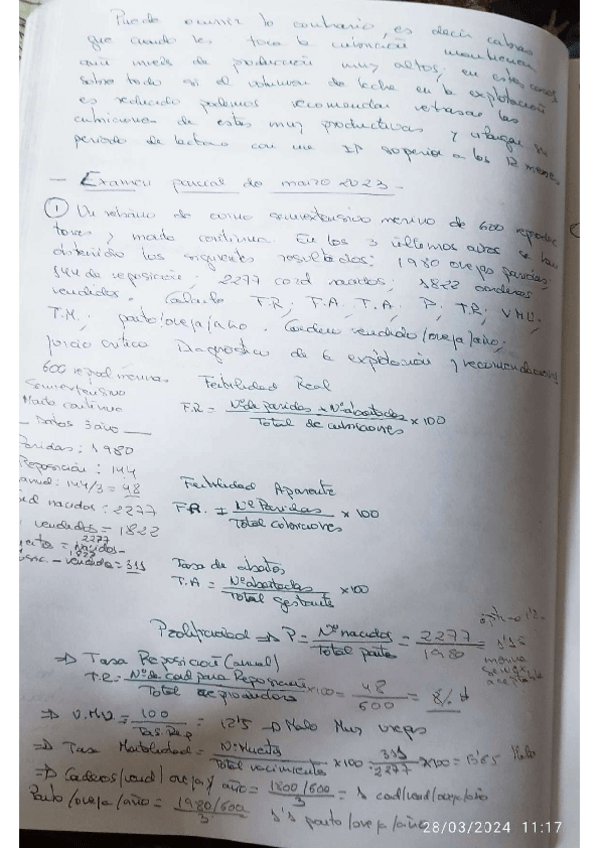 Puede ocurrir lo contrario, es decir cabras
que cuando les toca la cubrición mantienen
niveles de producción muy altos, en estos casos
sobre todo si el volumen de leche en la explotación
es reducido podemos recomendar retrasar las
cubriciones de estas muy productivas y alargar
periodo de lactano con un IP superior a los 12 meses
- Examen parcial de marzo 2023 -
① Un rebaño de semiextensivo merino de 600
y mado continua. En los 3 últimos años se han
obtenido los siguientes resultados: 1980 ovejas paridas;
144 de reposición; 2277 cord nacidos; 1822 corderos
vendidos. Calcula T.R; T.A; T.A; P; T.R; VMU;
T.M; parto/oveja/año. Cordero vendido/oveja/año;
Juicio crítico Diagnostico de la explotación y recomendaciones
600 merinas
Semiextensivo
Mado continuo
- Datos 3 año -
Paridas: 1980
Reposición: 144
anual: 144/3 = 48
nacidos: 2277
vendidos = 1822
2277
1822
- vendida = 311
Fertilidad Real
F.R = Nº de paridas + Nº abortadas / Total de cubriciones x 100
Fertilidad Aparente
F.R. = Nº Paridas / Total cubriciones x 100
Tasa de abortos
T.A = Nº abortadas / Total gestante x100
Prolificidad => P = Nº nacidos / Total parto = 2277 / 1980 = 1'15
merina
aceptable
=> Tasa Reposición (anual)
T.R = Nº de cord para Reposición / Total reproductora x100 = 48 / 600 = 8%
=> V.M.U = 100 / Tas. Rep = 12'5 -> Malo Muy viejas
=> Tasa Mortalidad = Nº Muerto / Total nacimiento x 100 311 / 2277 x100 = 13'65 Malo
=> Corderos/vend/oveja y año = 1800/600 / 3 = 1 cod/vend/oveja/año
Parto/oveja/año = 1980/600 / 3 1'1 parto/oveja/año
28/03/2024 11:17